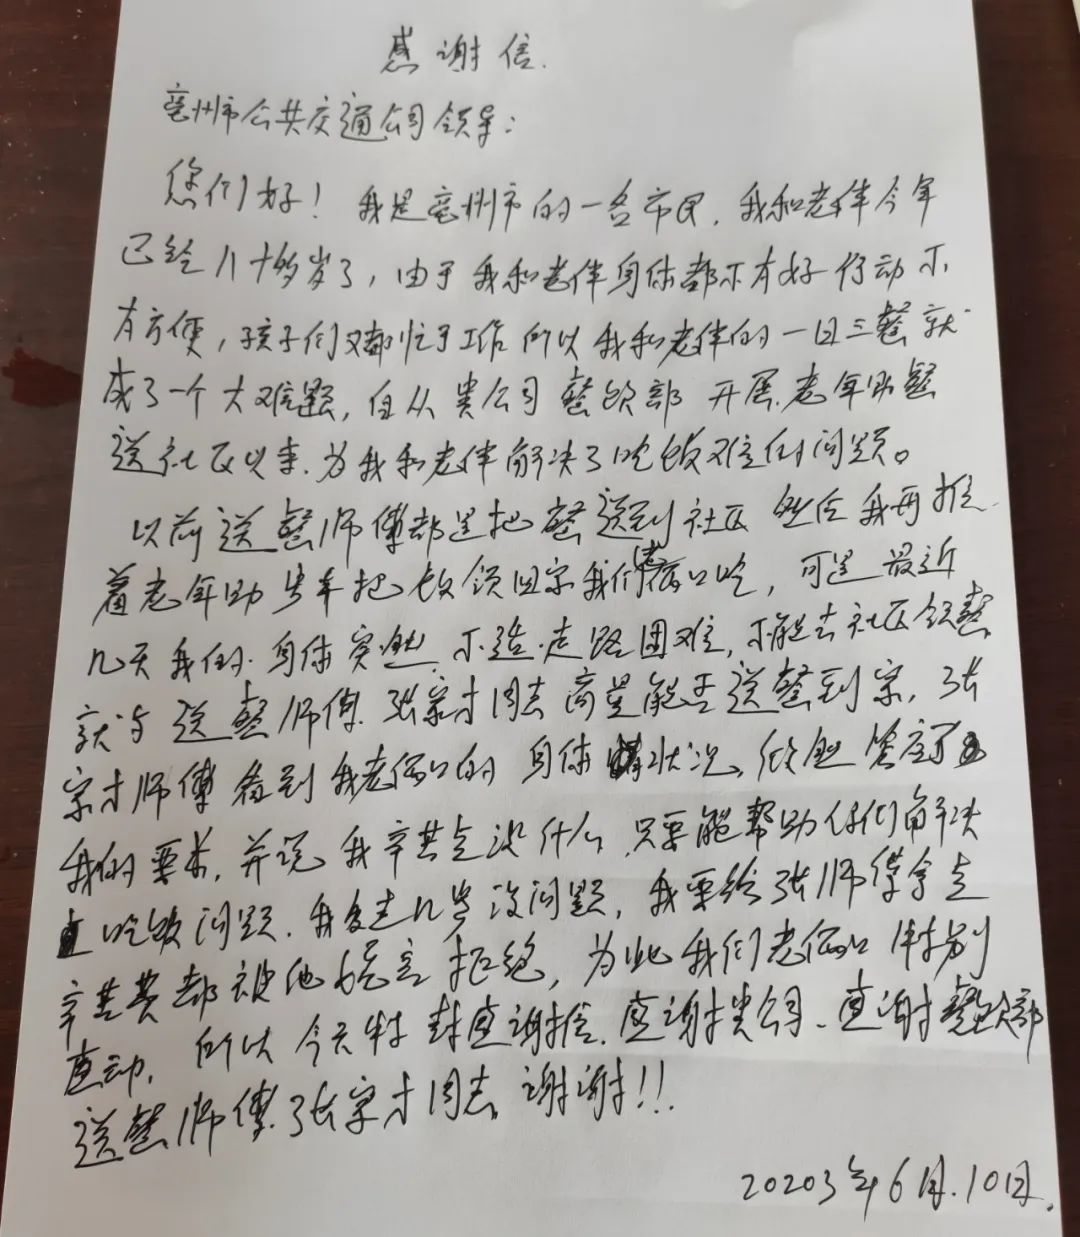 感谢信.
亳州市公共交通公司领导:
您们好! 我是亳州市的一名市民, 我和老伴今年
已经八十多岁了, 由于我和老伴身体都不有好行动不
有方便, 孩子们又都忙于工作所以我和老伴的一日三餐就
成了一个大难题, 自从贵公司餐饮部开展老年助餐
送社区以来, 为我和老伴解决了吃饭难的问题。
以前送餐师傅都是把餐送到社区 然后我再推
着老年助步车把饭领回家我们俩口吃, 可是最近
几天我的身体突然不适走路困难, 不能去社区领餐
就与送餐师傅张家才同志商量能否送餐到家, 张
家才师傅看到我老俩口的身体状况, 欣然答应了
我的要求, 并说我辛苦点没什么, 只要能帮助你们解决
吃饭问题, 我多走几步没问题, 我要给张师傅拿点
辛苦费都被他婉言拒绝, 为此我们老俩口特别
感动, 所以今天特封感谢信, 感谢贵公司、感谢餐饮部
送餐师傅张家才同志, 谢谢!!
20203年6月10日.